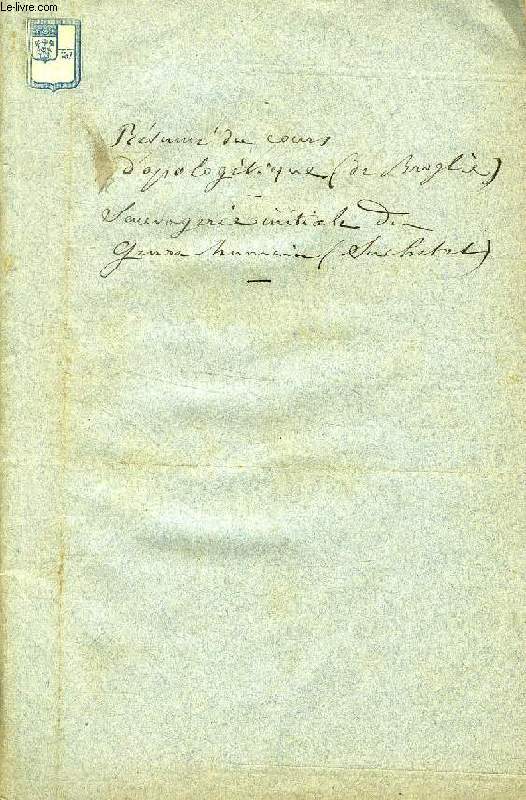 Le-livre.com
Résumé du cours
d'apologétique (de Broglie)
Sauvagerie initiale du
Genre humain (Suchetet)